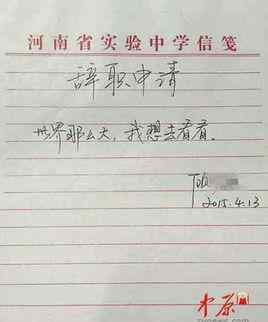 河南省实验中学信笺
辞职申请
世界那么大，我想去看看。
2015.4.13
中原